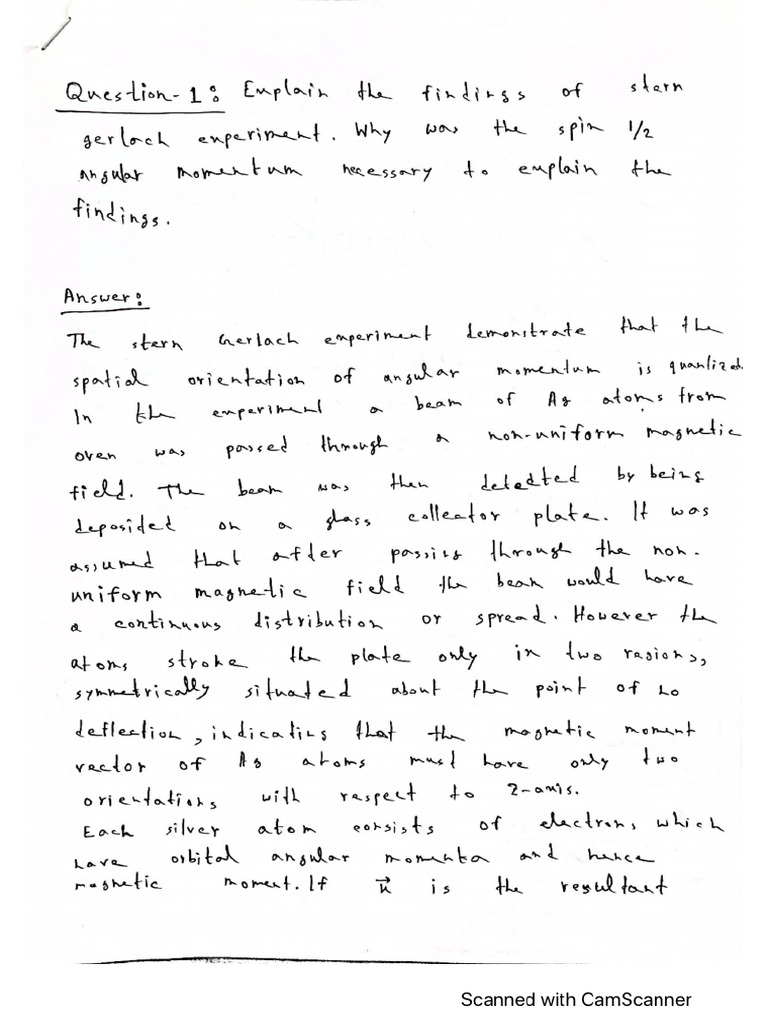 Question-1: Explain the findings of stern
gerlach experiment. Why was the spin 1/2
angular momentum necessary to explain the
findings.
Answer:
The stern Gerlach experiment demonstrate that the
spatial orientation of angular momentum is quantized.
In the experiment a beam of Ag atoms from
oven was passed through a non-uniform magnetic
field. The beam was then detected by being
deposided on a glass collector plate. It was
assumed that after passing through the non-
uniform magnetic field the beam would have
a continuous distribution or spread. However the
atoms stroke the plate only in two regions,
symmetrically situated about the point of no
deflection, indicating that the magnetic moment
vector of Ag atoms must have only two
orientations with respect to z-axis.
Each silver atom consists of electrons, which
have orbital angular momenta and hence
magnetic moment. If is the resultant
Scanned with CamScanner